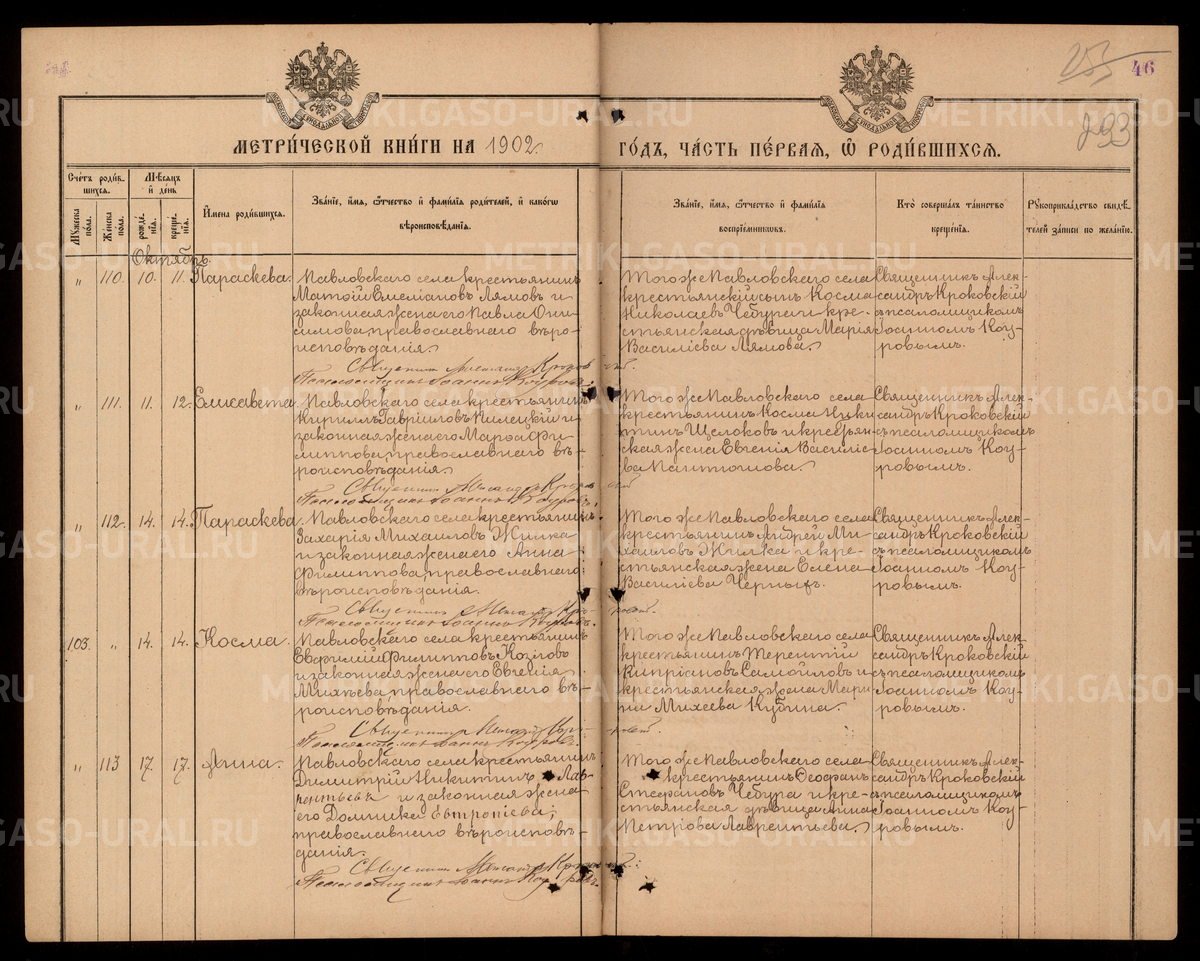 46
253
293
МЕТРИ́ЧЕСКОЙ КНИ́ГИ НА 1902
ГО́ДЪ, ЧА́СТЬ ПЕ́РВАЯ, Ѽ РОДИ́ВШИХСЯ.
Сче́тъ роди́в-
шихся.
Мѣ́сяцъ
и҆ де́нь
Му́жеска по́ла.
Же́нска по́ла.
рожде́нїя.
креще́нїя.
И҆́мена роди́вшихся.
Зва́нїе, и҆́мя, ѻ҆́тчество и҆ фами́лїя роди́телей, и҆ како́гѡ
вѣроисповѣ́данїя.
Зва́нїе, и҆́мя, ѻ҆́тчество и҆ фами́лїя
воспрїе́мниковъ.
Кто̀ соверша́лъ та́инство
креще́нїя.
Рꙋкоприкла́дство свидѣ́-
телей за́писи по жела́нїю.
Октябрь.
" 110. 10. 11. Параскева.
Павловскаго села крестьянинъ
Матѳій Емеліановъ Лямовъ и
законная жена его Павла Они-
симова, православнаго вѣро-
исповѣданія.
Священникъ Александръ Кроковскій.
Псаломщикъ Іоаннъ Коуровъ.
Того же Павловскаго села
крестьянскій сынъ Косма
Николаевъ Чебура и кре-
стьянская дѣвица Марія
Василіева Лямова.
Священникъ Алек-
сандръ Кроковскій
съ псаломщикомъ
Іоанномъ Коу-
ровымъ.
" 111. 11. 12. Елисавета.
Павловскаго села крестьянинъ
Кириллъ Гавріиловъ Килецкій и
законная жена его Марѳа Фи-
липпова, православнаго вѣ-
роисповѣданія.
Священникъ Александръ Кроковскій
Псаломщикъ Іоаннъ Коуровъ.
Того же Павловскаго села
крестьянинъ Косма Ники
тинъ Щелоковъ и крестьян
ская жена Евгенія Василіе
ва Пантюшова.
Священникъ Алек-
сандръ Кроковскій
съ псаломщикомъ
Іоанномъ Коу-
ровымъ.
" 112. 14. 14. Параскева.
Павловскаго села крестьянинъ
Захарія Михаиловъ Жилка
и законная жена его Анна
Филиппова, православнаго
вѣроисповѣданія.
Священникъ Александръ Кроковскій.
Псаломщикъ Іоаннъ Коуровъ.
Того же Павловскаго села
крестьянинъ Андрей Ми
хаиловъ Жилка и кре-
стьянская жена Елена
Василіева Черныхъ.
Священникъ Алек-
сандръ Кроковскій
съ псаломщикомъ
Іоанномъ Коу-
ровымъ.
103. " 14. 14. Косма.
Павловскаго села крестьянинъ
Евфимій Филипповъ Козловъ
и законная жена его Евгенія
Михеева, православнаго вѣ-
роисповѣданія.
Священникъ Александръ Кроковскій.
Псаломщикъ Іоаннъ Коуровъ.
Того же Павловскаго села
крестьянинъ Терентій
Кипріановъ Самойловъ и
крестьянская жена Мари
на Михеева Кубина.
Священникъ Алек-
сандръ Кроковскій
съ псаломщикомъ
Іоанномъ Коу-
ровымъ.
" 113 17. 17. Анна.
Павловскаго села крестьянинъ
Димитрій Никитинъ Лав-
рентьевъ и законная жена
его Домника Евтропіева,
православнаго вѣроисповѣ-
данія.
Священникъ Александръ Кроковскій.
Псаломщикъ Іоаннъ Коуровъ.
Того же Павловскаго села
крестьянинъ Ѳеофанъ
Стефановъ Чебура и кре-
стьянская дѣвица Анна
Петрова Лаврентьева.
Священникъ Алек-
сандръ Кроковскій
съ псаломщикомъ
Іоанномъ Коу-
ровымъ.
METRIKI.GASO-URAL.RU